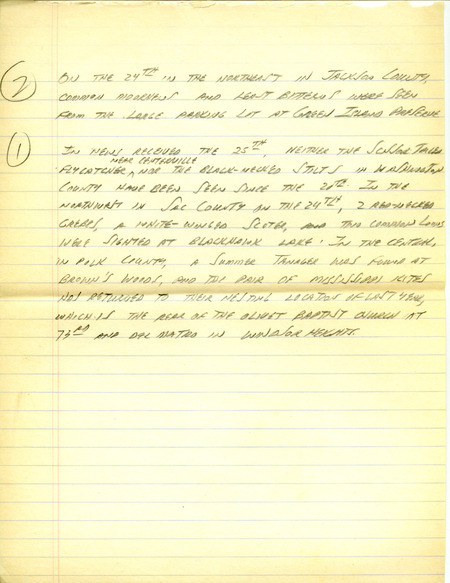 2
ON THE 24TH IN THE NORTHEAST IN JACKSON COUNTY,
COMMON MOORHENS AND LEAST BITTERNS WERE SEEN
FROM THE LARGE PARKING LOT AT GREEN ISLAND PRESERVE
1
IN NEWS RECEIVED THE 25TH, NEITHER THE SCISSOR TAILED
NEAR CENTERVILLE
FLYCATCHER, NOR THE BLACK-NECKED STILTS IN WASHINGTON
COUNTY HAVE BEEN SEEN SINCE THE 20TH. IN THE
NORTHWEST IN SAC COUNTY ON THE 24TH, 2 RED-NECKED
GREBES, A WHITE-WINGED SCOTER, AND TWO COMMON LOONS
WERE SIGHTED AT BLACKHAWK LAKE. IN THE CENTER,
IN POLK COUNTY, A SUMMER TANAGER WAS FOUND AT
BROWN'S WOODS, AND THE PAIR OF MISSISSIPPI KITES
HAS RETURNED TO THEIR NESTING LOCATION OF LAST YEAR,
WHICH IS THE REAR OF THE OLIVET BAPTIST CHURCH AT
73RD AND DEL MATRO IN WINDSOR HEIGHTS.